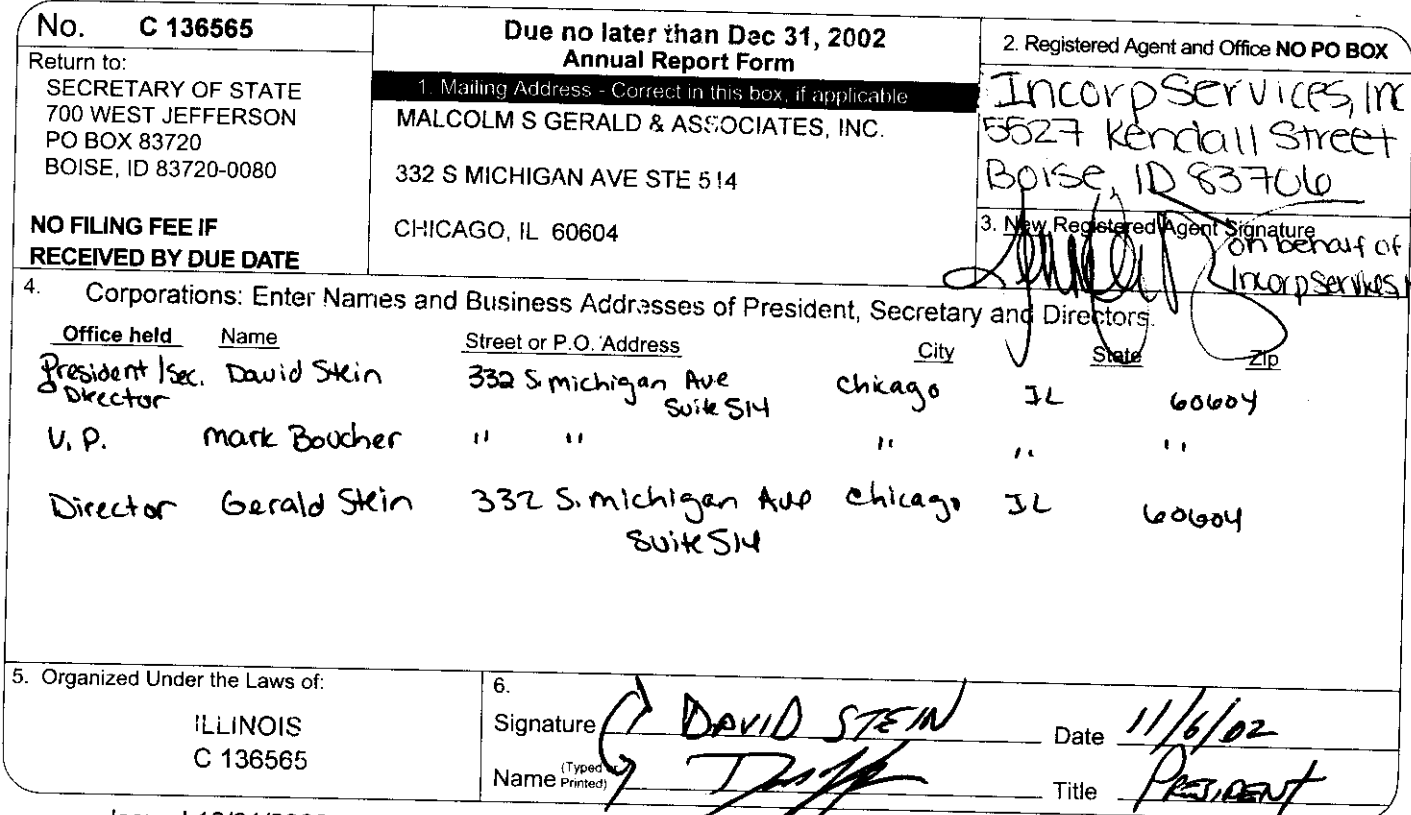 No. C 136565
Return to:
SECRETARY OF STATE
700 WEST JEFFERSON
PO BOX 83720
BOISE, ID 83720-0080
NO FILING FEE IF
RECEIVED BY DUE DATE
Due no later than Dec 31, 2002
Annual Report Form
1. Mailing Address - Correct in this box, if applicable
MALCOLM S GERALD & ASSOCIATES, INC.
332 S MICHIGAN AVE STE 514
CHICAGO, IL 60604
2. Registered Agent and Office NO PO BOX
Incorp Services, Inc
5527 Kendall Street
Boise, ID 83706
3. New Registered Agent Signature
on behalf of
Incorp Services,
4. Corporations: Enter Names and Business Addresses of President, Secretary and Directors.
Office held Name Street or P.O. Address City State Zip
President/Sec. David Stein 332 S. michigan Ave Chicago IL 60604
Director Suite 514
V.P. Mark Boucher " " " " "
Director Gerald Stein 332 S. michigan Ave Chicago IL 60604
Suite 514
5. Organized Under the Laws of:
ILLINOIS
C 136565
6.
Signature DAVID STEIN Date 11/6/02
Name (Typed or Printed) Title PRESIDENT